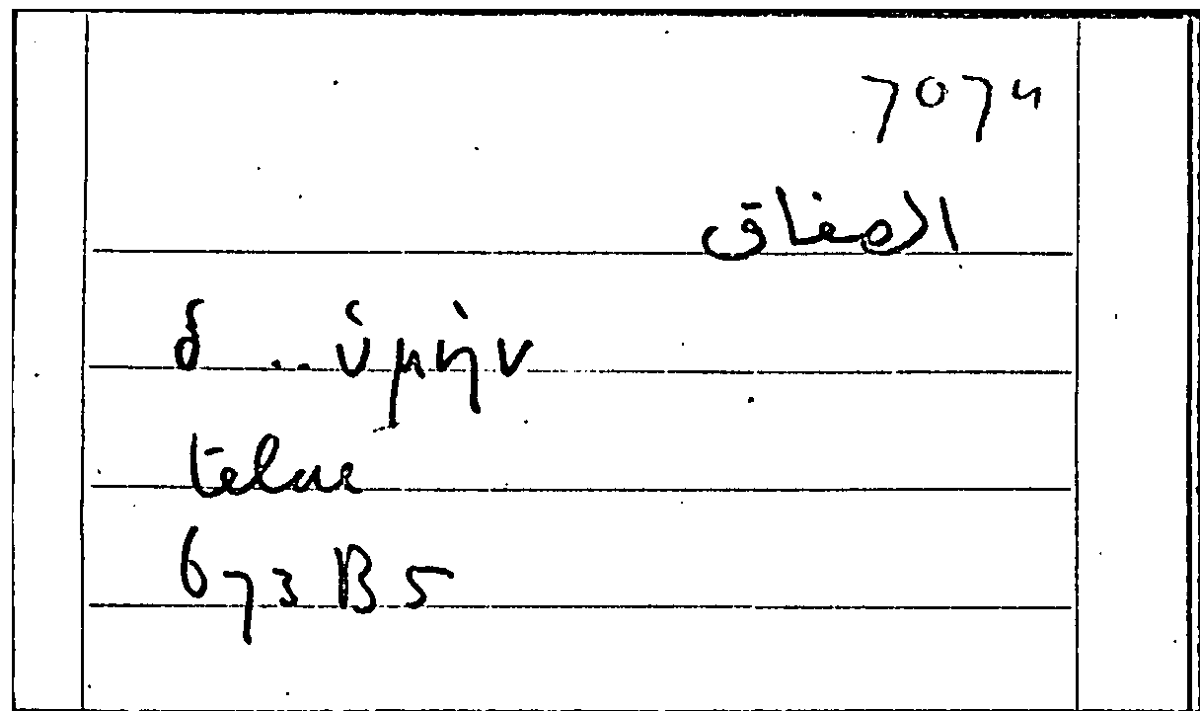 7074
الصفاق
ὁ ... ὑμὴν
telae
673 B 5